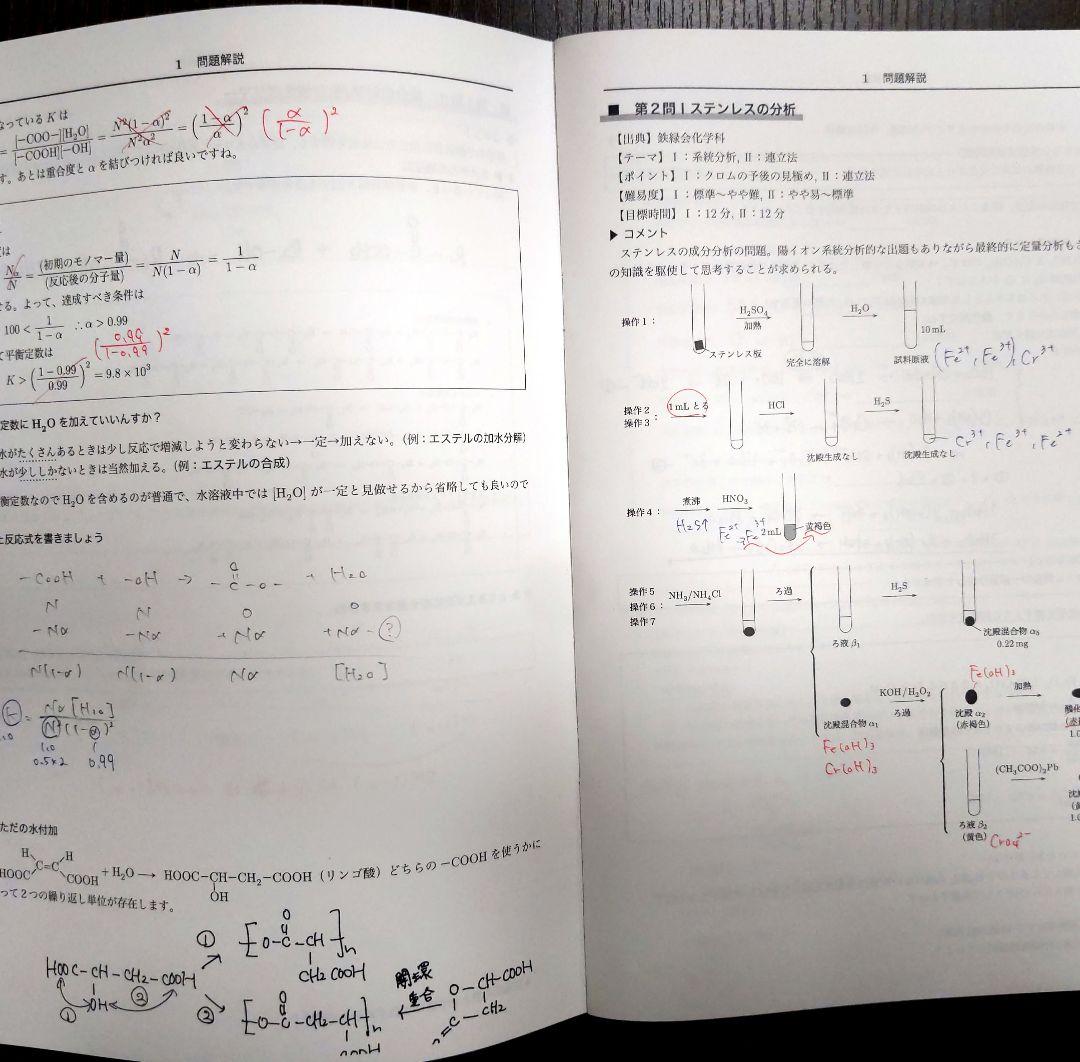 1 問題解説
なっている K は
= [-COO-][H₂O] / [-COOH][-OH] = N²(1-α)² / N²α² = (1-α / α)² (α / 1-α)²
す。あとは重合度と α を結びつければ良いですね。
度は
N₀ / N = (初期のモノマー量) / (反応後の分子量) = N / N(1-α) = 1 / 1-α
せる。よって、達成すべき条件は
100 < 1 / 1-α ∴α > 0.99
て平衡定数は (0.99 / 1-0.99)²
K > (1-0.99 / 0.99)² = 9.8 × 10³
定数に H₂O を加えていいんすか？
水がたくさんあるときは少し反応で増減しようと変わらない→一定→加えない。（例：エステルの加水分解）
水が少ししかないときは当然加える。（例：エステルの合成）
衡定数なので H₂O を含めるのが普通で、水溶液中では [H₂O] が一定と見做せるから省略しても良いので
と反応式を書きましょう
-COOH + -OH → -C-O- + H₂O
O
N N O O
-Nα -Nα +Nα +Nα-?
N(1-α) N(1-α) Nα [H₂O]
= Nα[H₂O] / N²(1-α)²
1.0
0.5×2 0.99
ただの水付加
H H
C=C
HOOC COOH + H₂O → HOOC-CH-CH₂-COOH（リンゴ酸）どちらの -COOH を使うかに
OH
って２つの繰り返し単位が存在します。
① [O-C-CH]n
O
CH₂COOH
HOOC-CH-CH₂-COOH
OH
① ②
② [O-C-CH₂-CH]n
O
COOH
開環
重合
O-CH-COOH
C-CH₂
O
1 問題解説
■ 第２問 I ステンレスの分析
【出典】鉄緑会化学科
【テーマ】I：系統分析, II：連立法
【ポイント】I：クロムの予後の見極め, II：連立法
【難易度】I：標準～やや難, II：やや易～標準
【目標時間】I：12分, II：12分
▶ コメント
ステンレスの成分分析の問題。陽イオン系統分析的な出題もありながら最終的に定量分析も
の知識を駆使して思考することが求められる。
操作１： H₂SO₄ 加熱 H₂O 10 mL
ステンレス板 完全に溶解 試料原液 (Fe²⁺, Fe³⁺), Cr³⁺
操作２ 1 mL とる HCl H₂S
操作３：
沈殿生成なし 沈殿生成なし Cr³⁺, Fe³⁺, Fe²⁺
操作４： 煮沸 HNO₃ 黄褐色
H₂S↑ Fe²⁺→Fe³⁺ 2 mL
操作５ NH₃/NH₄Cl ろ過 H₂S
操作６：
操作７
ろ液 β₁ 沈殿混合物 α₃
0.22 mg
Fe(OH)₃
KOH/H₂O₂ 加熱
ろ過
沈殿混合物 α₁ 沈殿 α₂ 酸化
(赤褐色) (赤
Fe(OH)₃ 1.0
Cr(OH)₃
(CH₃COO)₂Pb
沈
ろ液 β₂ (黄
(黄色) CrO₄²⁻ 1.0